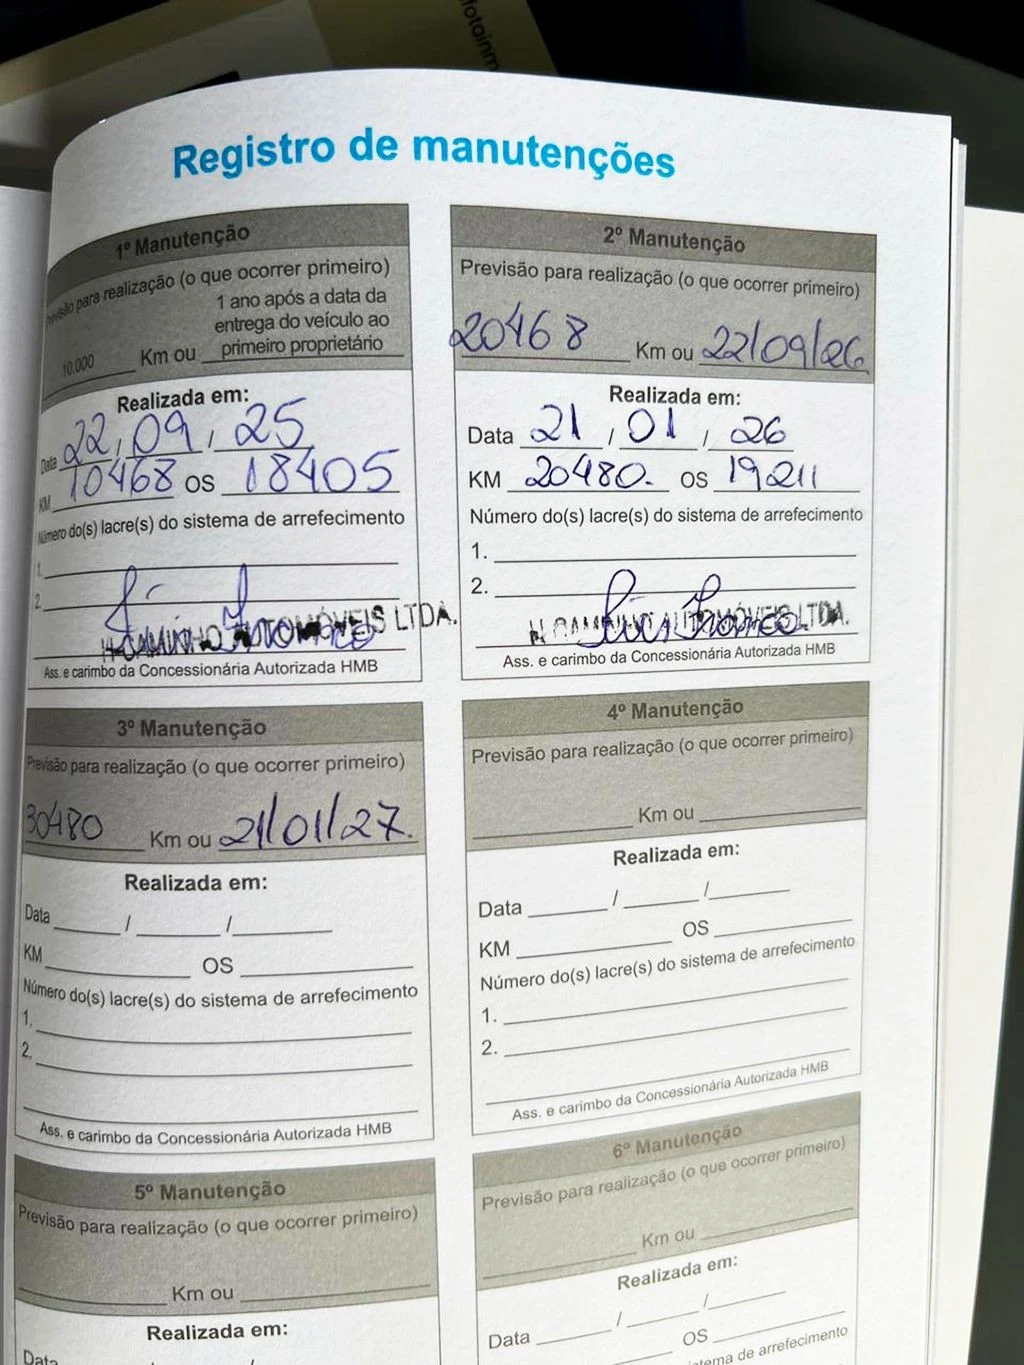 fotainm
Registro de manutenções
1º Manutenção
Previsão para realização (o que ocorrer primeiro)
10.000 Km ou 1 ano após a data da entrega do veículo ao primeiro proprietário
Realizada em:
Data 22 / 09 / 25
KM 10468 OS 18405
Número do(s) lacre(s) do sistema de arrefecimento
1.
2.
H CAMINHO AUTOMÓVEIS LTDA.
Ass. e carimbo da Concessionária Autorizada HMB
2º Manutenção
Previsão para realização (o que ocorrer primeiro)
20468 Km ou 22/09/26
Realizada em:
Data 21 / 01 / 26
KM 20480. OS 19211
Número do(s) lacre(s) do sistema de arrefecimento
1.
2.
H CAMINHO AUTOMÓVEIS LTDA.
Ass. e carimbo da Concessionária Autorizada HMB
3º Manutenção
Previsão para realização (o que ocorrer primeiro)
30480 Km ou 21/01/27.
Realizada em:
Data / /
KM OS
Número do(s) lacre(s) do sistema de arrefecimento
1.
2.
Ass. e carimbo da Concessionária Autorizada HMB
4º Manutenção
Previsão para realização (o que ocorrer primeiro)
Km ou
Realizada em:
Data / /
KM OS
Número do(s) lacre(s) do sistema de arrefecimento
1.
2.
Ass. e carimbo da Concessionária Autorizada HMB
5º Manutenção
Previsão para realização (o que ocorrer primeiro)
Km ou
Realizada em:
Data /
6º Manutenção
Previsão para realização (o que ocorrer primeiro)
Km ou
Realizada em:
Data / /
OS
stema de arrefecimento